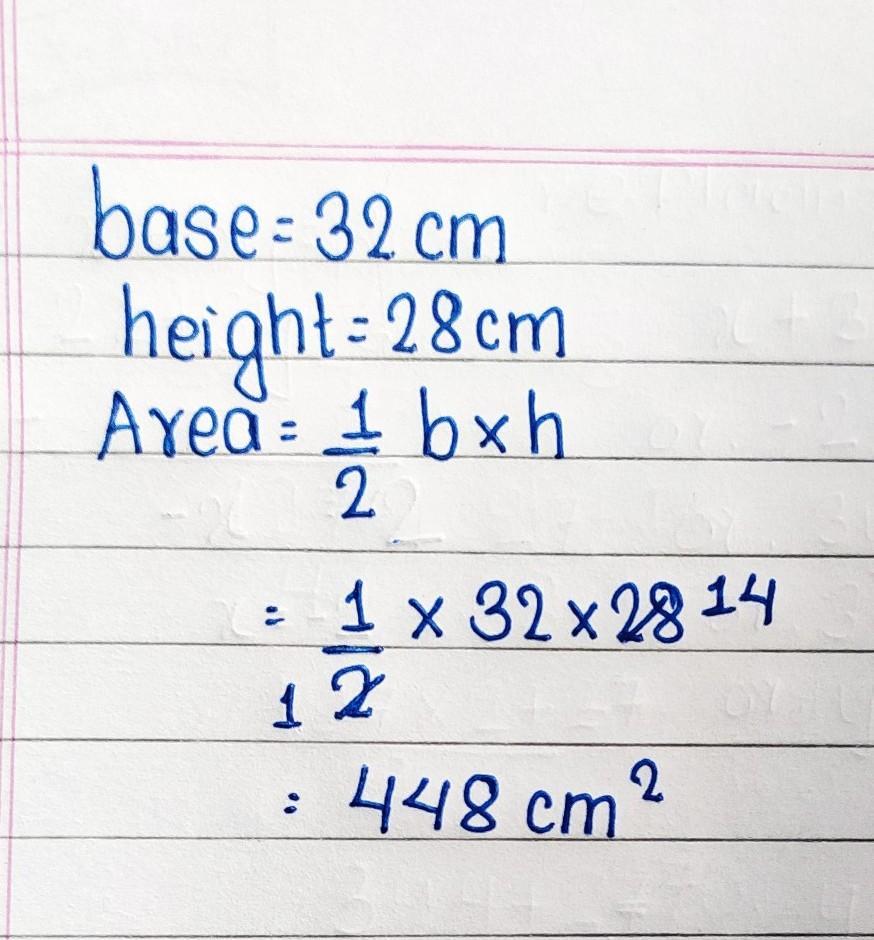 base = 32 cm
height = 28 cm
Area = 1/2 b x h
= 1/2 x 32 x 28 14
1
= 448 cm²